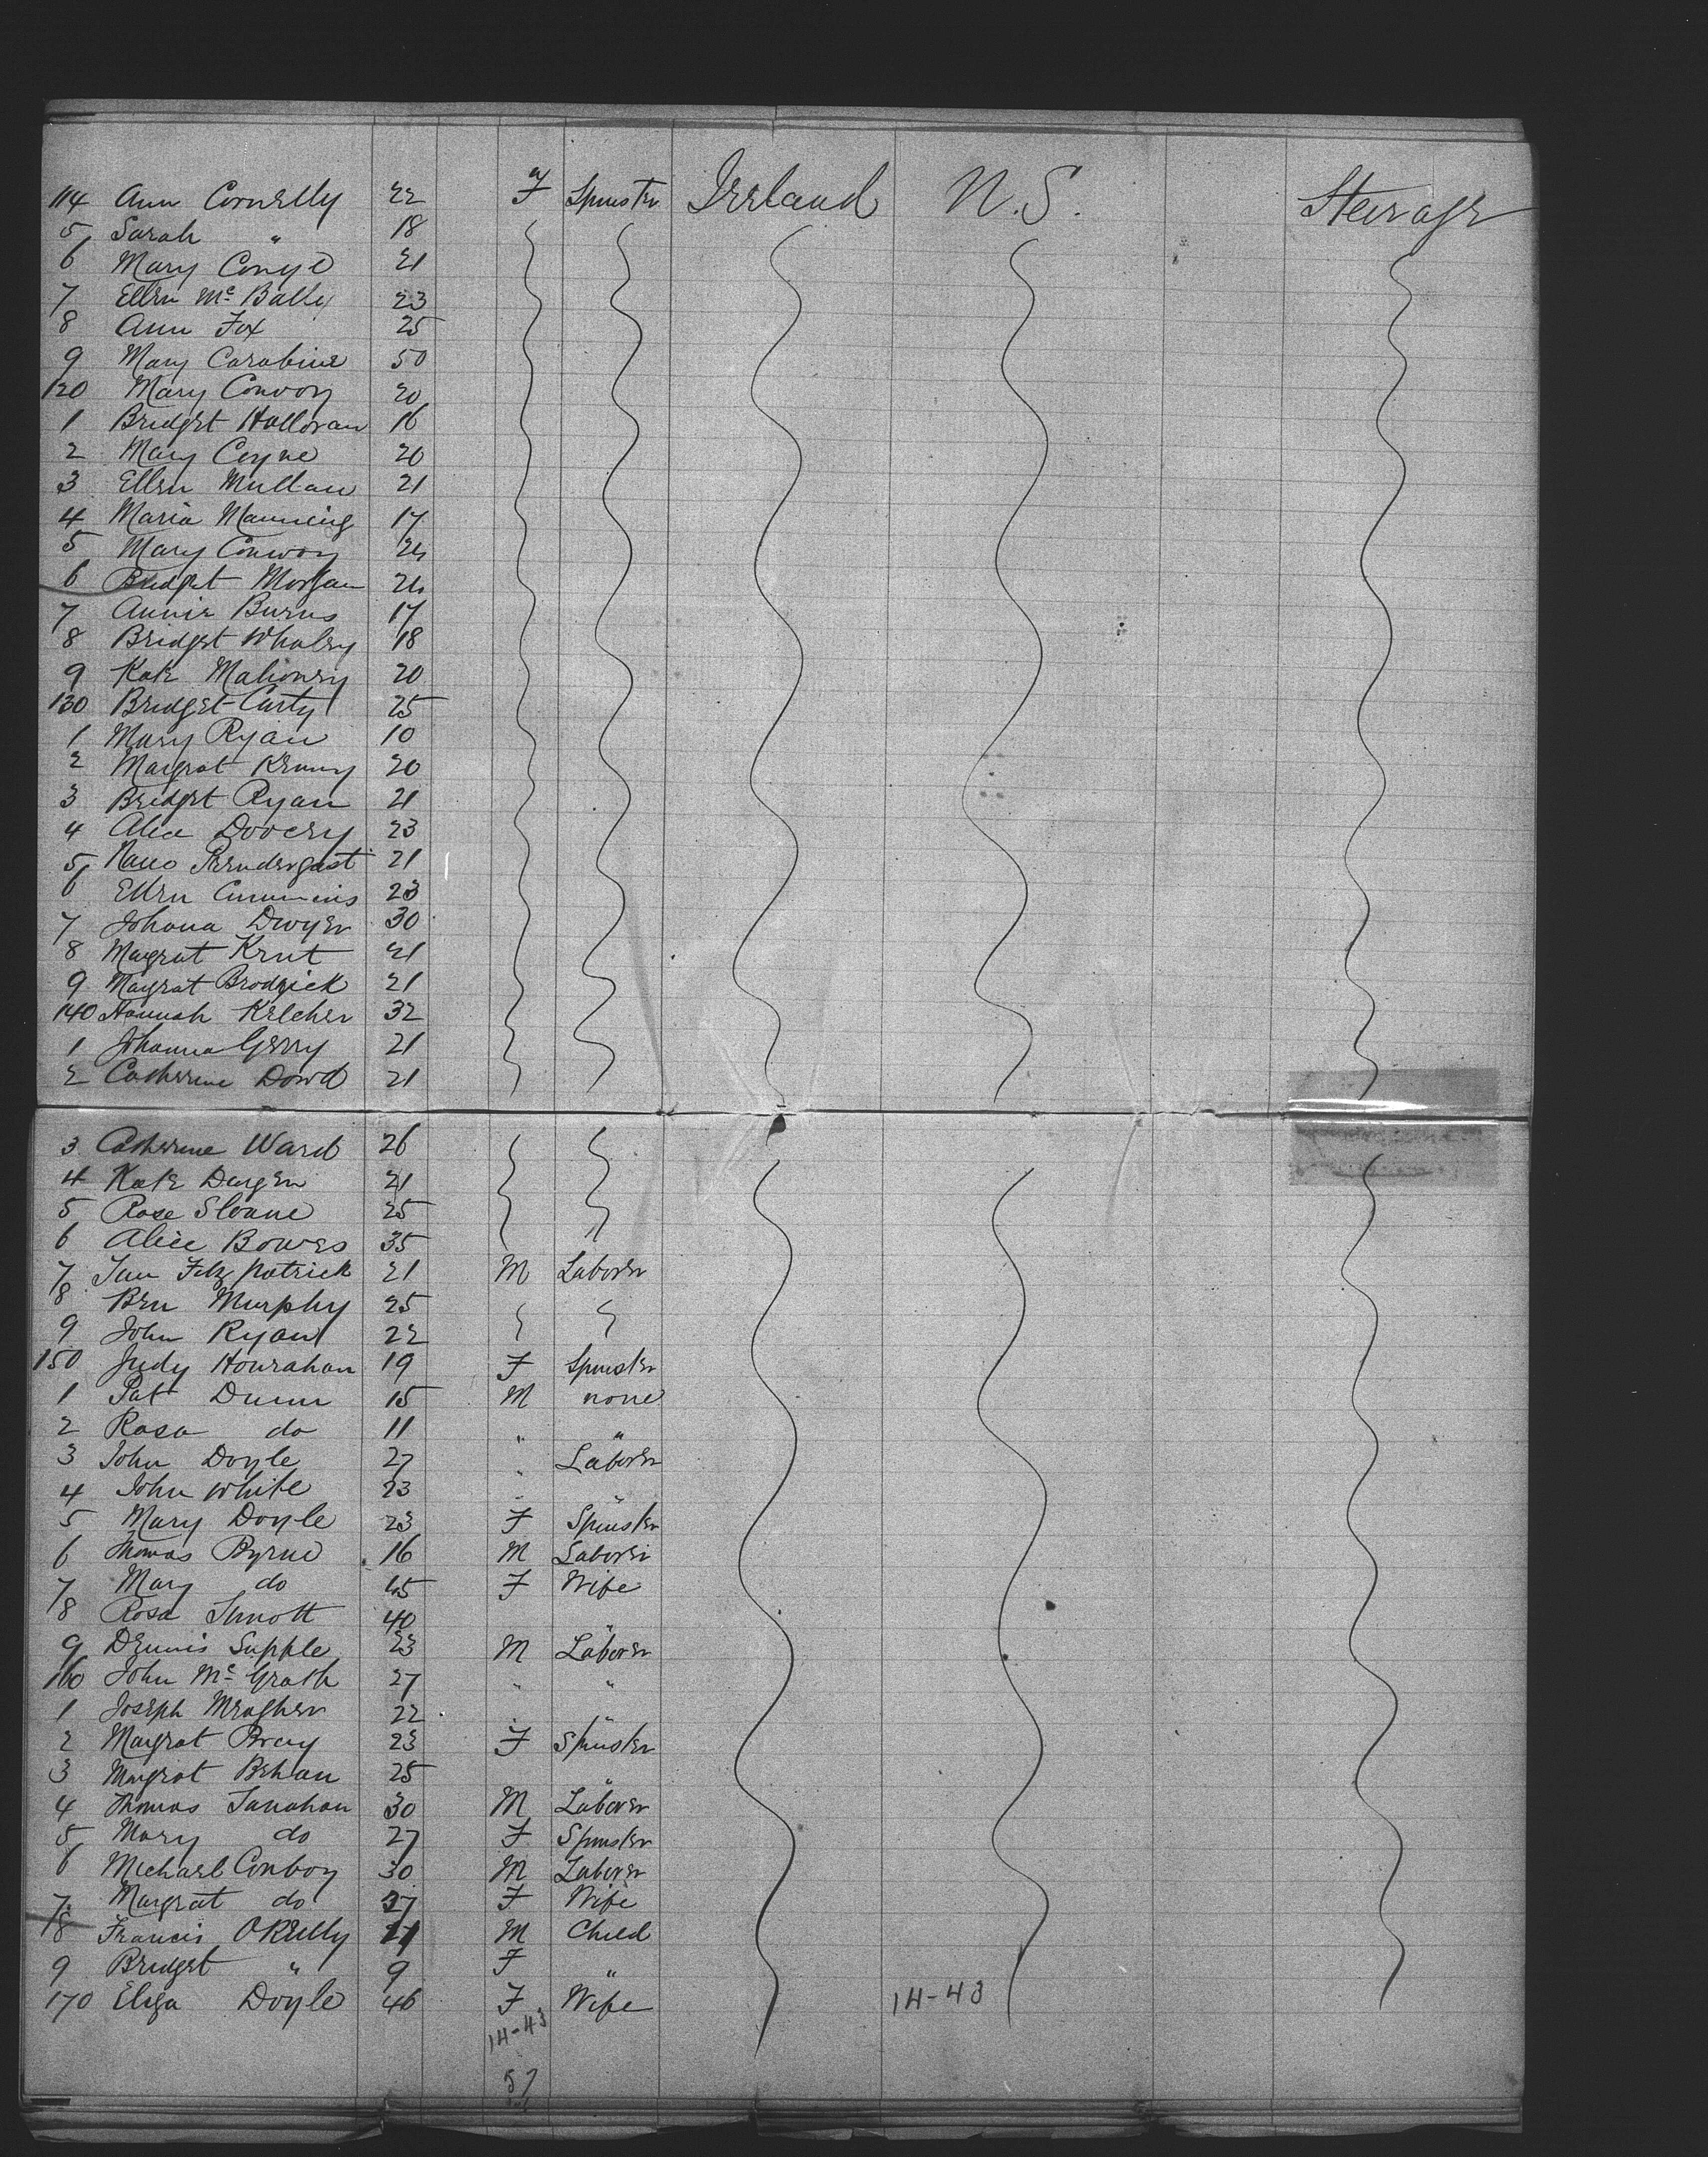 114 Ann Connelly 22 F Spinster Ireland N.S. Steerage
5 Sarah " 18
6 Mary Conye 21
7 Ellen Mc Bally 23
8 Ann Fox 25
9 Mary Carabine 50
120 Mary Convoy 20
1 Bridget Halloran 16
2 Mary Coyne 20
3 Ellen Mullan 21
4 Maria Manning 17
5 Mary Conway 24
6 Bridget Morgan 24
7 Annie Burns 17
8 Bridget Whaley 18
9 Kate Mahoney 20
130 Bridget Carty 25
1 Mary Ryan 10
2 Margrat Kenny 20
3 Bridget Ryan 21
4 Alice Doocey 23
5 Prendergast 21
6 Ellen Cummins 23
7 Johana Dwyer 30
8 Margrat Kent 21
9 Margrat Brodrick 21
140 Hannah Kelcher 32
1 Johanna Gerry 21
2 Catherine Dowd 21
3 Catherine Ward 26
4 Kate Durgen 21
5 Rose Sloane 25
6 Alice Bowes 35
7 Fitzpatrick 21 M Laborer
8 Ben Murphy 25
9 John Ryan 22
150 Judy Hourahan 19 F Spinster
1 Pat Dunn 15 M none
2 Rosa do 11 " "
3 John Doyle 27 " Laborer
4 John White 23 " "
5 Mary Doyle 23 F Spinster
6 Thomas Byrne 16 M Laborer
7 Mary do 45 F Wife
8 Rosa Sinott 40
9 Dennis Supple 23 M Laborer
160 John Mc Grath 27 " "
1 Joseph Meagher 22 " "
2 Margrat Bray 23 F Spinster
3 Margrat Behan 25 "
4 Thomas Lanahan 30 M Laborer
5 Mary do 27 F Spinster
6 Michael Conboy 30 M Laborer
7 Margrat do 27 F Wife
8 Francis OReilly 11 M Child
9 Bridget " 9 F "
170 Eliza Doyle 46 F Wife 14-43
14-43
57